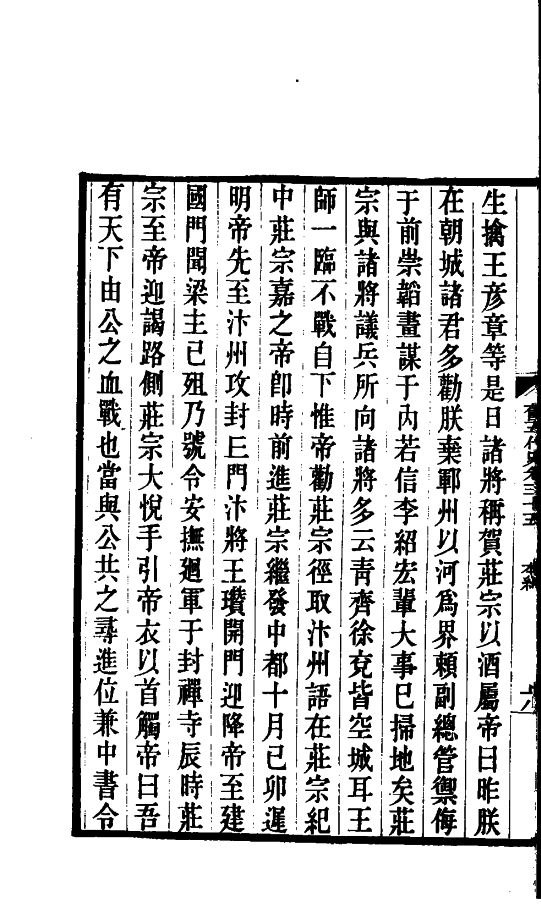 生擒王彥章等是日諸將稱賀莊宗以酒屬帝曰昨朕
在朝城諸君多勸朕棄鄆州以河爲界賴副總管禦侮
于前崇韜畫謀于內若信李紹宏輩大事已掃地矣莊
宗與諸將議兵所向諸將多云靑齊徐兗皆空城耳王
師一臨不戰自下惟帝勸莊宗徑取汴州語在莊宗紀
中莊宗嘉之帝卽時前進莊宗繼發中都十月己卯遲
明帝先至汴州攻封丘門汴將王瓚開門迎降帝至建
國門聞梁主已殂乃號令安撫廻軍于封禪寺辰時莊
宗至帝迎謁路側莊宗大悅手引帝衣以首觸帝曰吾
有天下由公之血戰也當與公共之尋進位兼中書令